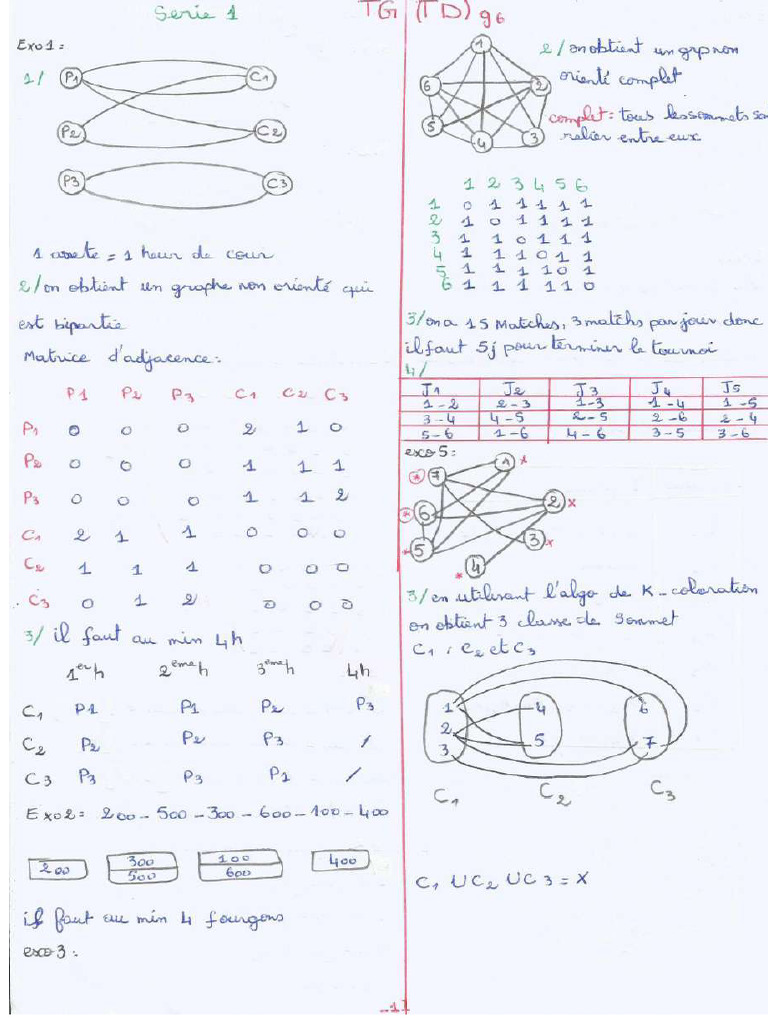 Serie 1
TG (TD) g6
Exo1 =
1/
P1 C1
P2 C2
P3 C3
1 arrete = 1 heur de cour
2/ on obtient un graphe non orienté qui
est bipartie
Matrice d'adjacence :
P1 P2 P3 C1 C2 C3
P1 0 0 0 2 1 0
P2 0 0 0 1 1 1
P3 0 0 0 1 1 2
C1 2 1 1 0 0 0
C2 1 1 1 0 0 0
C3 0 1 2 0 0 0
3/ il faut au min 4h
1er h 2eme h 3eme h 4h
C1 P1 P1 P2 P3
C2 P2 P2 P3 /
C3 P3 P3 P1 /
Exo2 = 200 - 500 - 300 - 600 - 100 - 400
200 300 500 100 600 400
il faut au min 4 fourgons
exo3 :
1
6 2
5 4 3
2/ on obtient un grp non
orienté complet
complet : tous les sommets so
relier entre eux
1 2 3 4 5 6
1 0 1 1 1 1 1
2 1 0 1 1 1 1
3 1 1 0 1 1 1
4 1 1 1 0 1 1
5 1 1 1 1 0 1
6 1 1 1 1 1 0
3/ on a 15 Matches, 3 matchs par jour donc
il faut 5j pour terminer le tournoi
4/
J1 J2 J3 J4 J5
1-2 2-3 1-3 1-4 1-5
3-4 4-5 2-5 2-6 2-4
5-6 1-6 4-6 3-5 3-6
exo5 :
* 7 1 *
* 6 2 x
* 5 3 x
* 4
3/ en utilisant l'algo de K-coloration
on obtient 3 classe de Sommet
C1 : C2 et C3
1 4 6
2
3 5 7
C1 C2 C3
C1 U C2 U C3 = X
-1-